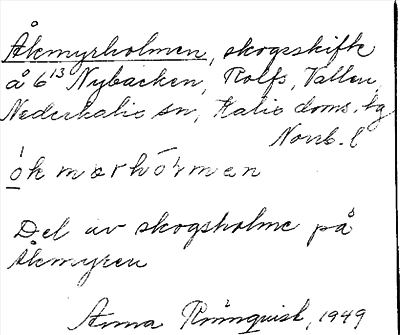 Åkmyrholmen, skogsskifte
å 6¹³ Nybacken, Rolfs, Vallen,
Nederkalix sn, Kalix doms. tg
Norrb. l
Del av skogsholme på
Åkmyren
Anna Rönnquist, 1949